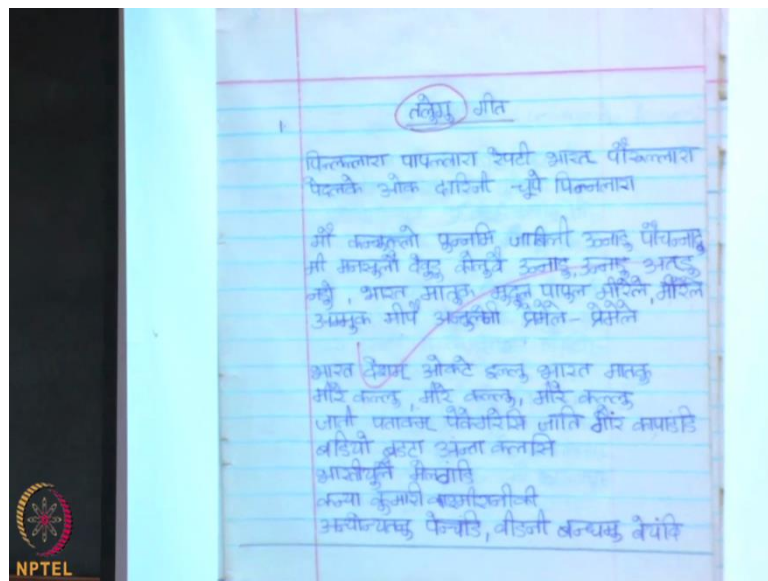 तेलुगु गीत
1.
पिल्लल्लारा पापल्लारा रेपटी भारत पौरुल्लारा
पेद्दलके ओक दारिनी चूपे पिन्नलारा
मी कन्नुल्लो पुन्नमि जाबिली उन्नाडु पौंचन्नाडु
मी मनसुलो देवुडु कोलुवै उन्नाडु, उन्नाडु अतडु
भारत मातकु मुद्दुल पापुल मीरेले, मीरेले
अम्मकु मीपै अन्तुलेनी प्रेमेले - प्रेमेले
भारत देशम् ओकटे इल्लु भारत मातकु
मीरे कल्लु, मीरे कल्लु, मीरे कल्लु
जाती पताकम् पैकेगरेसि जाति गौरं कापाडंडि
बडियो बडटा अन्ता कलासि
भारतीयुलै मेलगंडि
कन्या कुमारी काश्मीरानीकी
अन्योन्यतनु पेन्चंडि, वीडनी बन्धमु वेयंडि
NPTEL